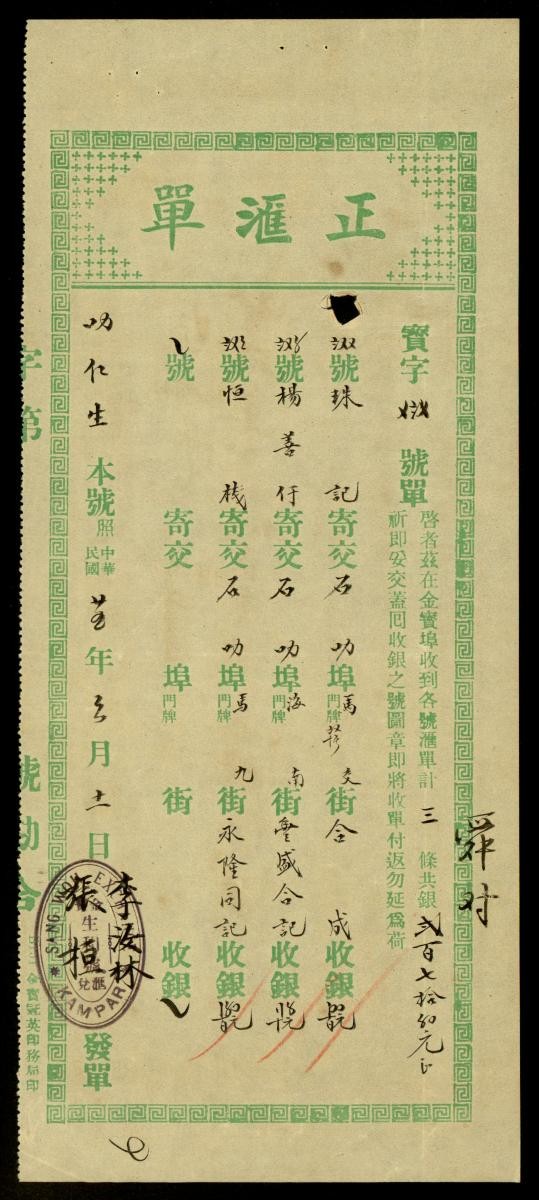 正滙單
寶字 號單
啓者茲在金寶埠收到各號滙單計三條共銀弍百七拾 元正
祈即妥交蓋回收銀之號圖章即將收單付返勿延爲荷
號珠記寄交石叻埠門牌馬 交街合成收銀
號楊善仔寄交石叻埠門牌海南街豊盛合記收銀
號恒棧寄交石叻埠門牌馬九街永隆同記收銀
號 寄交 埠門牌 街 收銀
叻仁生本號照
中華民國 年 月十一日 發單
李汝林
張桓
SANG WOH EX
KAMPAR
生
滙兌
舜对
字第 號勘合
金寶冠英印務局印